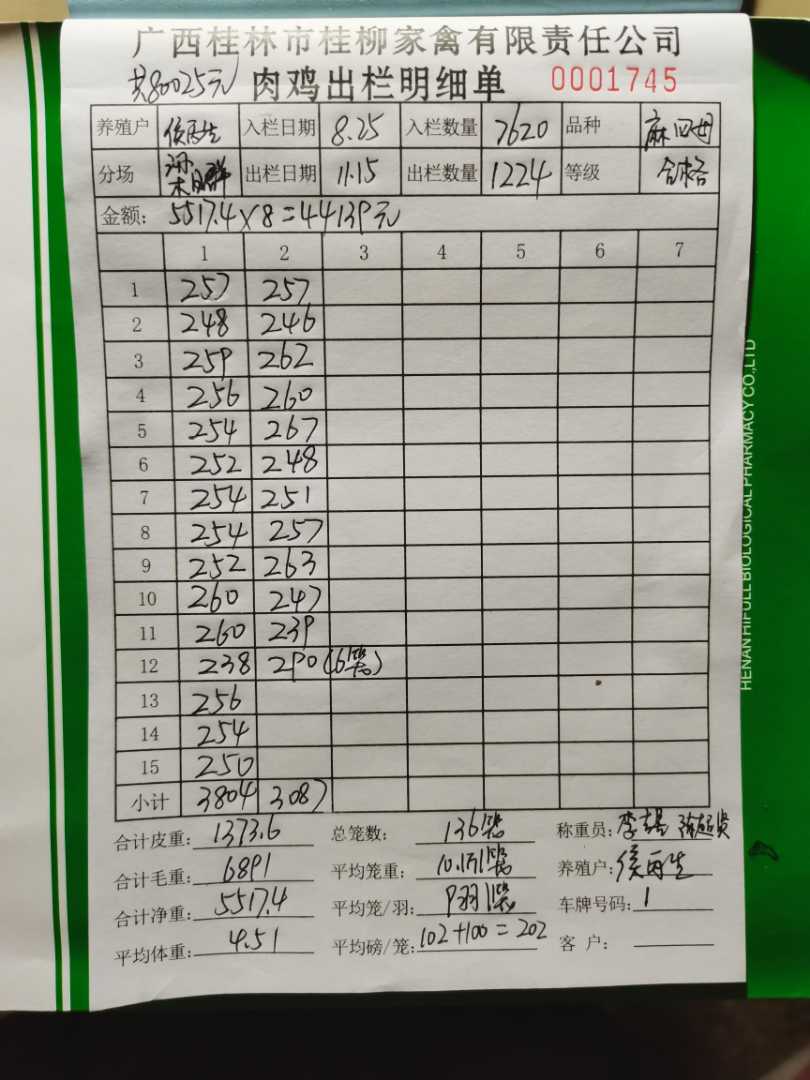 广西桂林市桂柳家禽有限责任公司
共80025元 肉鸡出栏明细单 0001745
养殖户 侯再生 入栏日期 8.25 入栏数量 7620 品种 麻四母
分场 出栏日期 11.15 出栏数量 1224 等级 合格
金额: 5517.4×8=44139元
1 2 3 4 5 6 7
1 257 257
2 248 246
3 259 262
4 256 260
5 254 267
6 252 248
7 254 251
8 254 257
9 252 263
10 260 247
11 260 239
12 238 290(6笼)
13 256
14 254
15 250
小计 3804 3087
合计皮重: 1373.6 总笼数: 136笼 称重员: 李
合计毛重: 6891 平均笼重: 10.1斤/笼 养殖户: 侯再生
合计净重: 5517.4 平均笼/羽: 9羽/笼 车牌号码: 1
平均体重: 4.51 平均磅/笼: 102+100=202 客户:
HENAN HIFULL BIOLOGICAL PHARMACY CO.,LTD